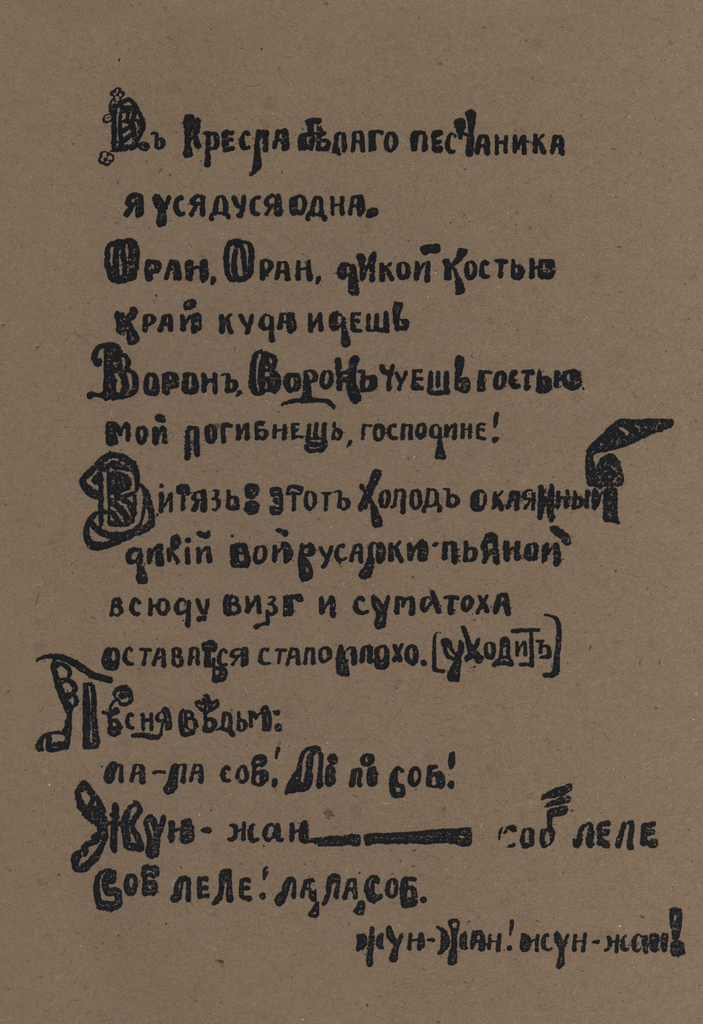 Въ кресла бѣлаго песчаника
я усядуся одна.
Оран, Оран, дикой костью
край куда идешь
Воронъ, Воронъ чуешь гостью
мой погибнешь, господине!
Витязь: этотъ холодъ окаянный
дикій вой русалки пьяной
всюду визг и суматоха
оставатся стало плохо. (уходитъ)
Пѣсня вѣдьм:
ла-ла соб! Лі лі соб!
Жун-жан — соб леле
Соб леле! ла, ла, соб.
жун-жан! жун-жан!